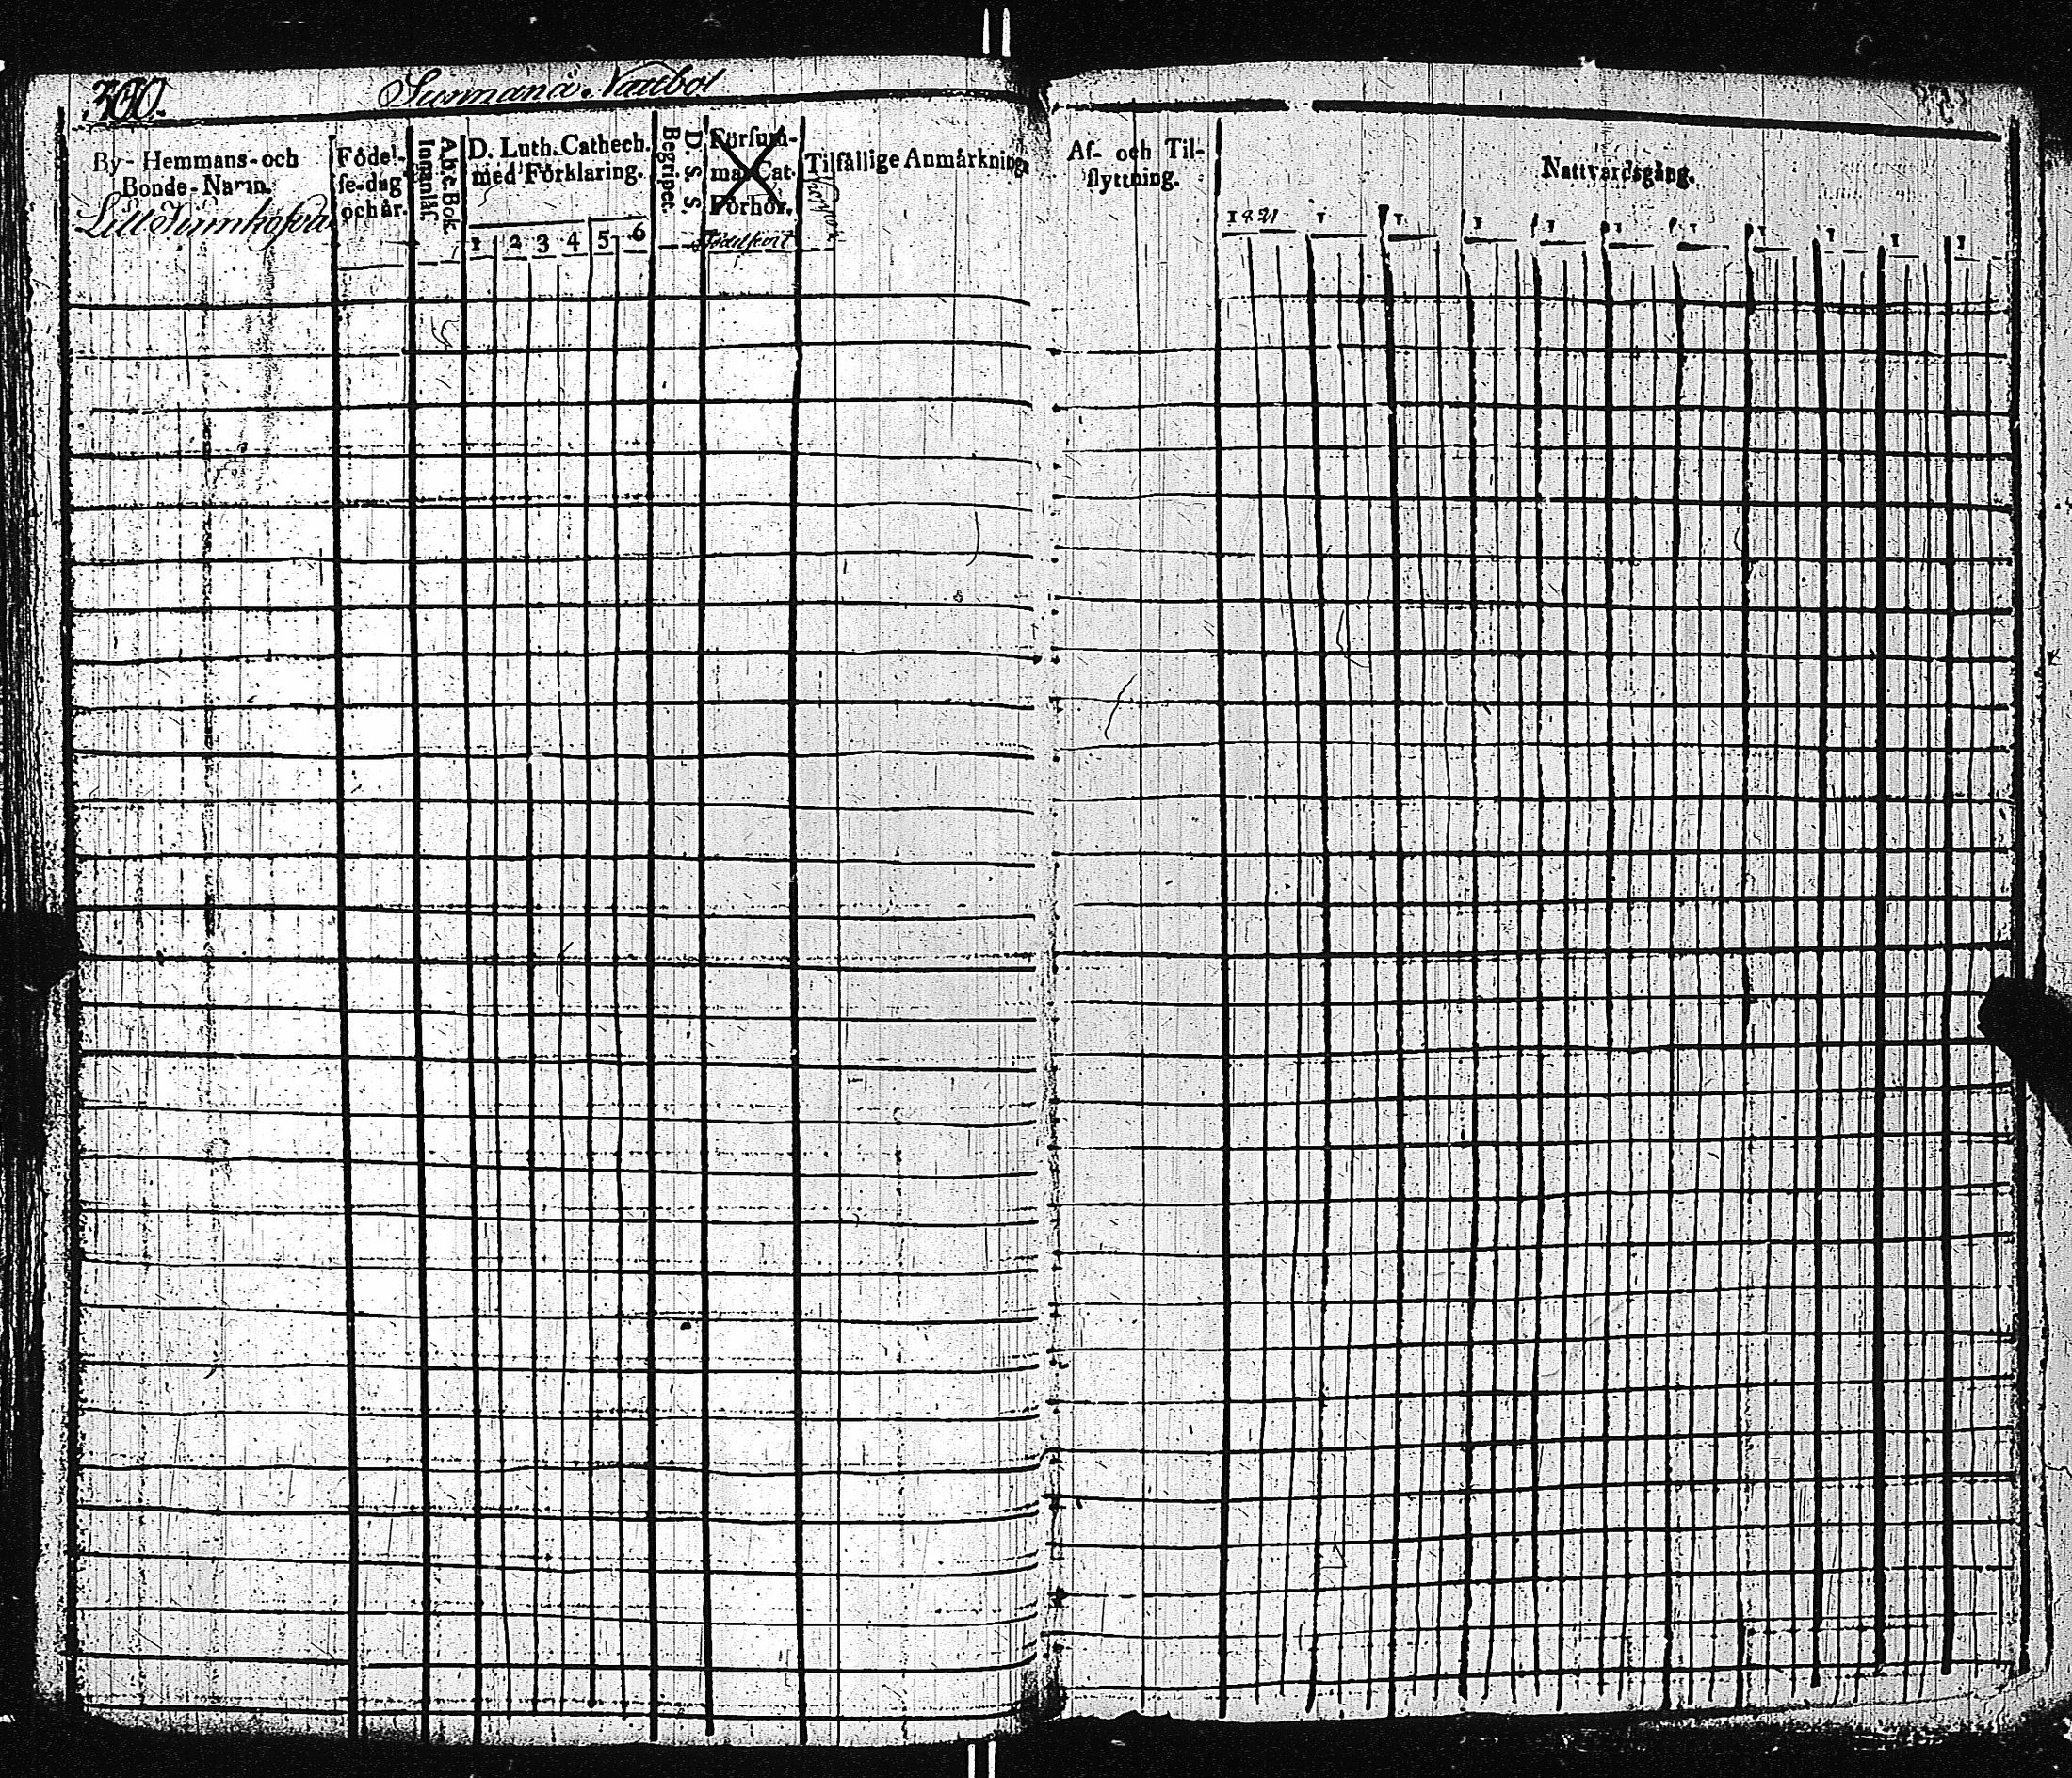 300.
Sunnanå Nattbol
By- Hemmans- och
Bonde-Namn.
Födel-
se-dag
och år.
A.b.c. Bok.
Innanläs.
D. Luth. Cathech.
med Förklaring.
1 2 3 4 5 6
D. S. S.
Begripet.
Försum-
mat Cat.
Förhör.
Tilfällige Anmärkning.
Af- och Til-
flyttning.
Nattvardsgång.
1821 1 1 1 1 1 1 1 1 1 1